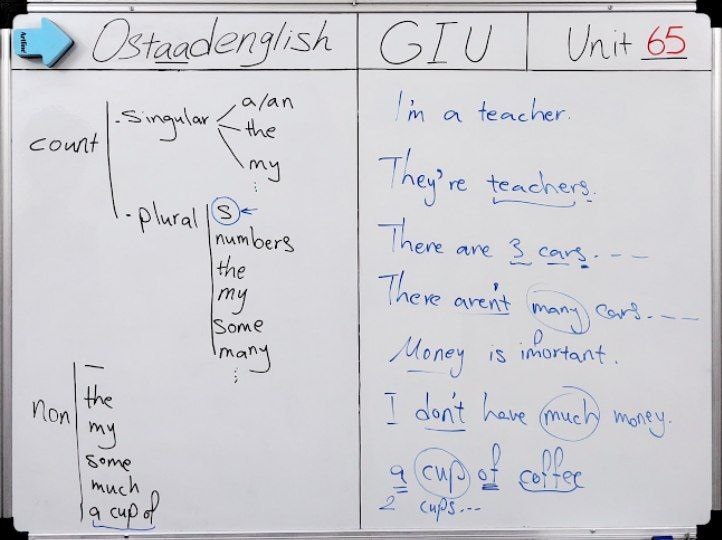 Artline
Ostaadenglish
GIU
Unit 65
count
- Singular
a/an
the
my
- plural
s
numbers
the
my
some
many
non
—
the
my
some
much
a cup of
I'm a teacher.
They're teachers.
There are 3 cars. ---
There aren't many cars. ---
Money is imortant.
p
I don't have much money.
a cup of coffee
2 cups...